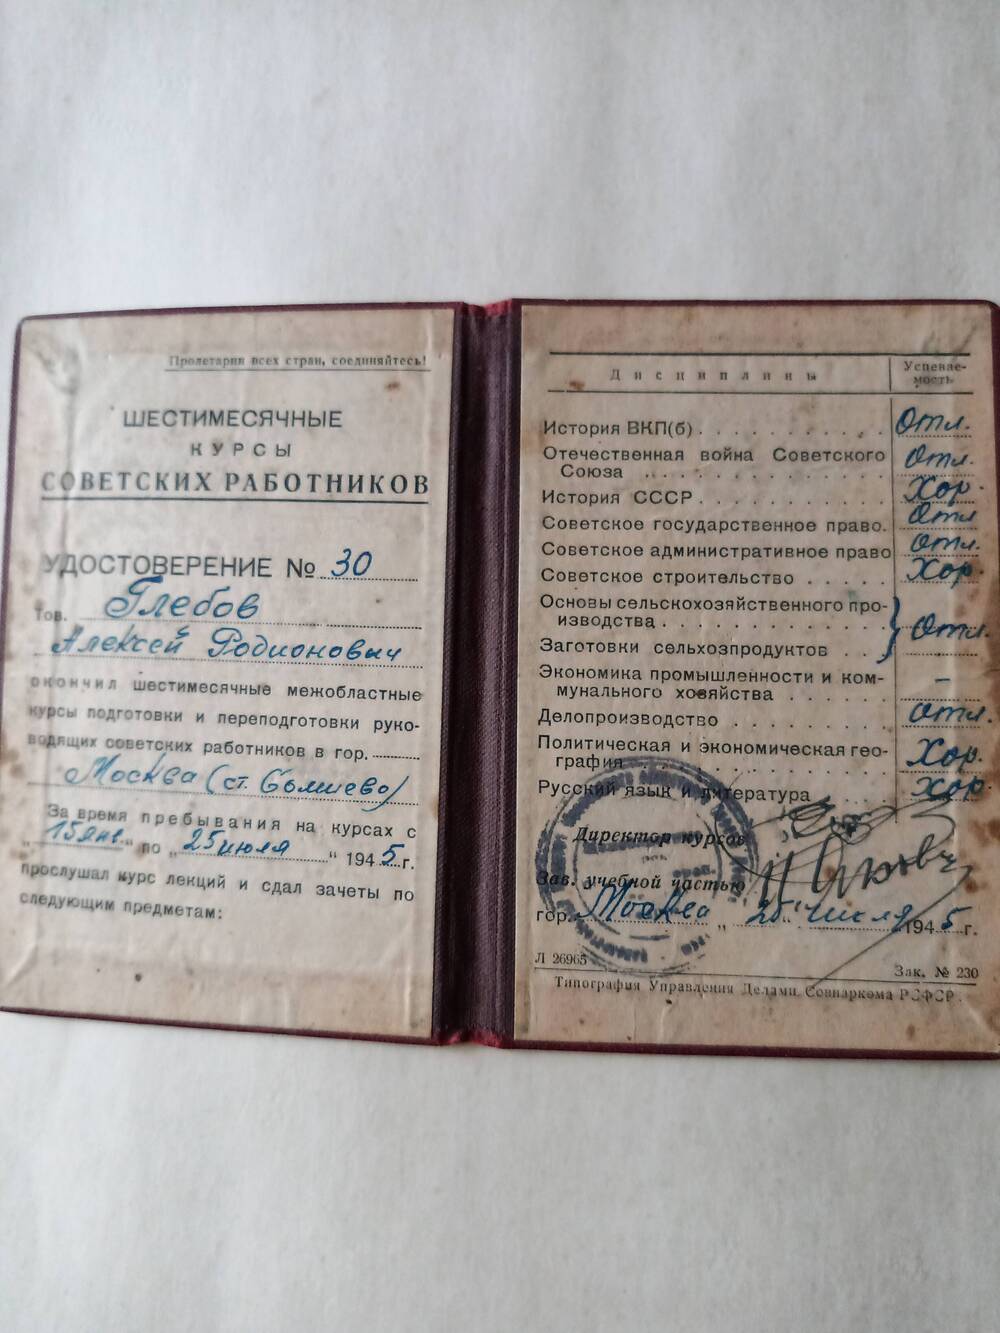 Пролетарии всех стран, соединяйтесь!
ШЕСТИМЕСЯЧНЫЕ
КУРСЫ
СОВЕТСКИХ РАБОТНИКОВ
УДОСТОВЕРЕНИЕ № 30
Тов. Глебов
Алексей Родионович
окончил шестимесячные межобластные
курсы подготовки и переподготовки руко-
водящих советских работников в гор.
Москва (ст.
За время пребывания на курсах с
„15 янв." по „25 июля" 1945 г.
прослушал курс лекций и сдал зачеты по
следующим предметам:
Дисциплины Успевае-
мость
История ВКП(б) . . . Отл.
Отечественная война Советского
Союза . . . Отл.
История СССР . . . Хор.
Советское государственное право. Отл
Советское административное право Отл.
Советское строительство . . . Хор.
Основы сельскохозяйственного про-
изводства . . . Отл.
Заготовки сельхозпродуктов . .
Экономика промышленности и ком-
мунального хозяйства . . . –
Делопроизводство . . . Отл.
Политическая и экономическая гео-
графия . . . Хор.
Русский язык и литература . . . Хор.
Директор курсов
Зав. учебной частью
гор. Москва „25" июля 1945 г.
Л 26965 Зак. № 230
Типография Управления Делами Совнаркома РСФСР.